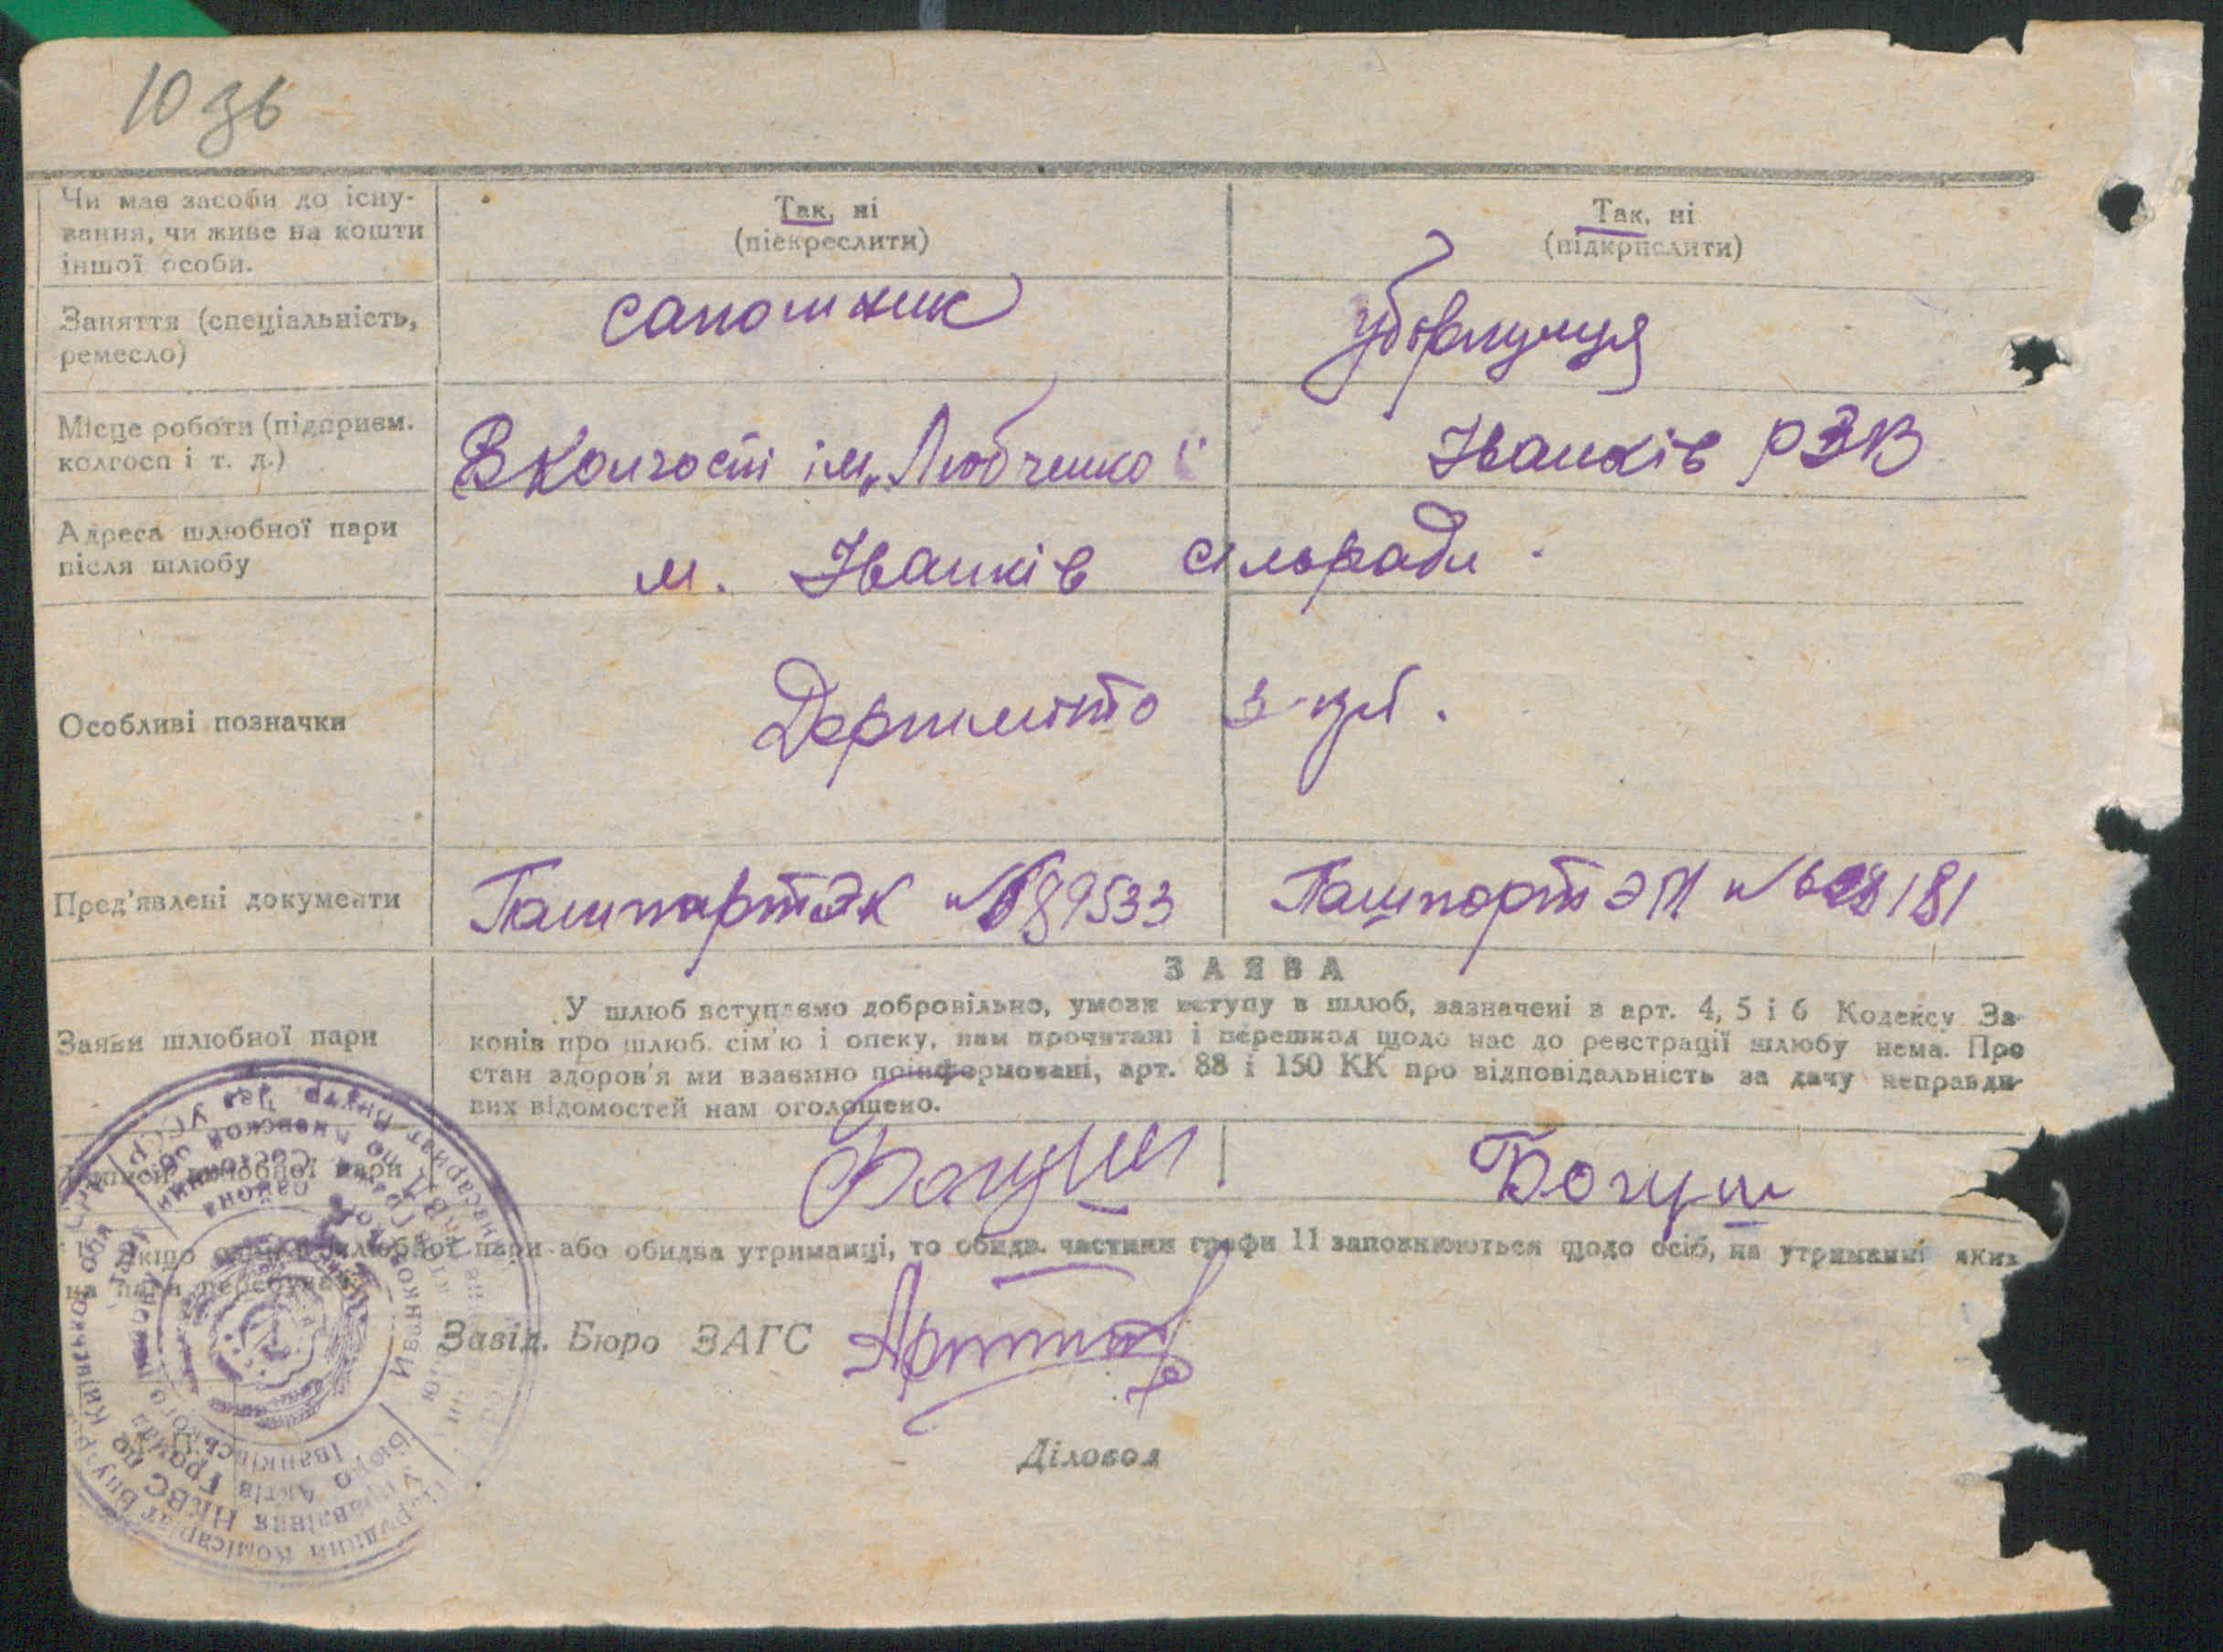 10 зв
Чи має засоби до існу-
вання, чи живе на кошти
іншої особи.
Так, ні
(піекреслити)
Так, ні
(підкрпслити)
Заняття (спеціальність,
ремесло)
сапожник
убіральниця
Місце роботи (підприєм.
колгосп і т. д.)
В Колгоспі ім. „Любченко"
Іванків РЗВ
Адреса шлюбної пари
після шлюбу
м. Іванків сільради.
Особливі позначки
Пред'явлені документи
Пашпорт ЭК № 689533
Пашпорт ЭП № 628181
ЗАЯВА
Заяви шлюбної пари
У шлюб вступаємо добровільно, умови вступу в шлюб, зазначені в арт. 4, 5 і 6 Кодексу За-
конів про шлюб. сім'ю і опеку, нам прочитані і перешкод щодо нас до реєстрації шлюбу нема. Про
стан здоров'я ми взаємно поінформовані, арт. 88 і 150 КК про відповідальність за дачу неправди-
вих відомостей нам оголошено.
шлюбної пари
Богуш
Богуш
шлюбної пари або обидва утриманці, то обидв. частини графи 11 заповнюються щодо осіб, на утриманні яких
Завід. Бюро ЗАГС
Діловод